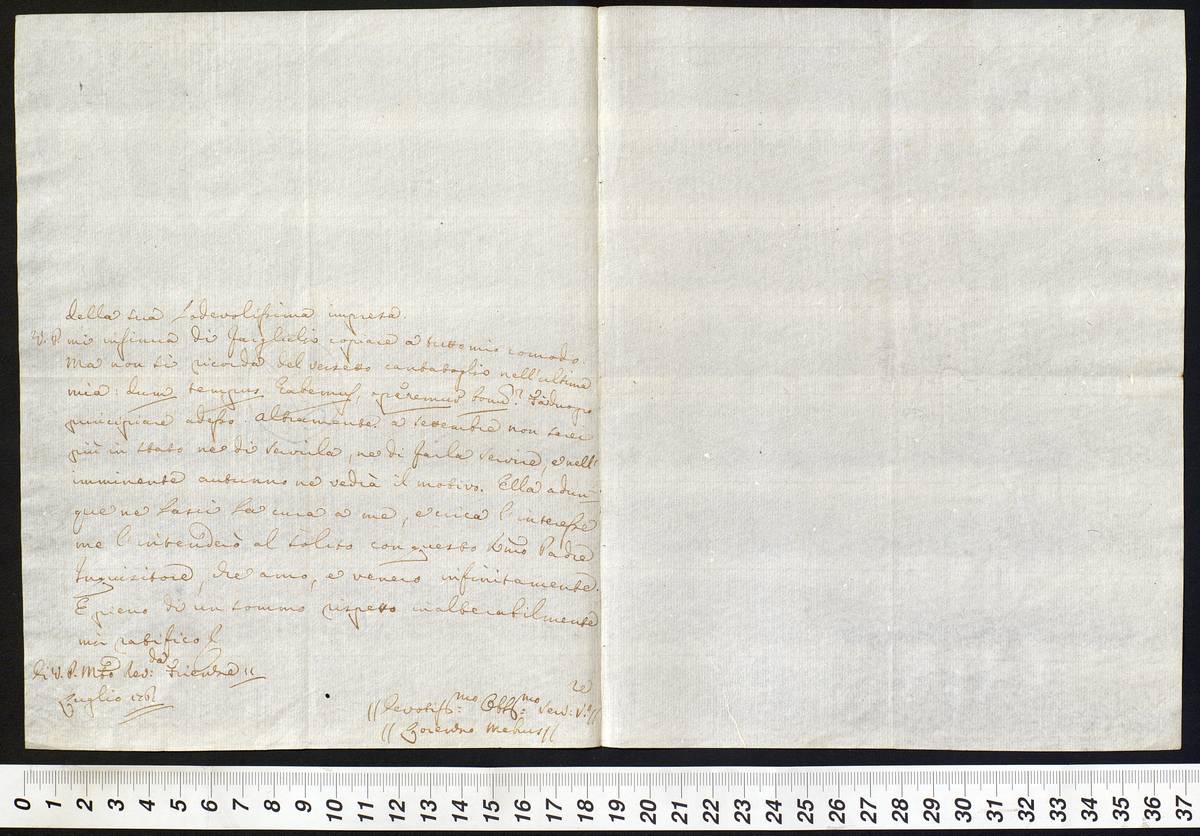 della sua Lodevolissima impresa.
V. P. mi insinua di farglielo copiare a tutto mio comodo.
Ma non si ricorda del versetto cantatoglio nell'ultima
mia: dum tempus habemus, operemur bonum
principiare adesso. Altramente a settembre non sarei
più in stato ne di servirla, ne di farla servire, e nell'
imminente autunno ne vedrà il motivo. Ella adun-
que ne lasci la cura a me, e circa l'interesse
me l'intenderò al solito con questo Rmo Padre
Inquisitore, che amo, e venero infinitamente.
E pieno di un sommo rispetto inalterabilmente
mi ratifico
Di V. P. M. Revda Firenze
Luglio
Devotissmo Obblmo Servre Vo
Lorenzo Mehus
0 1 2 3 4 5 6 7 8 9 10 11 12 13 14 15 16 17 18 19 20 21 22 23 24 25 26 27 28 29 30 31 32 33 34 35 36 37